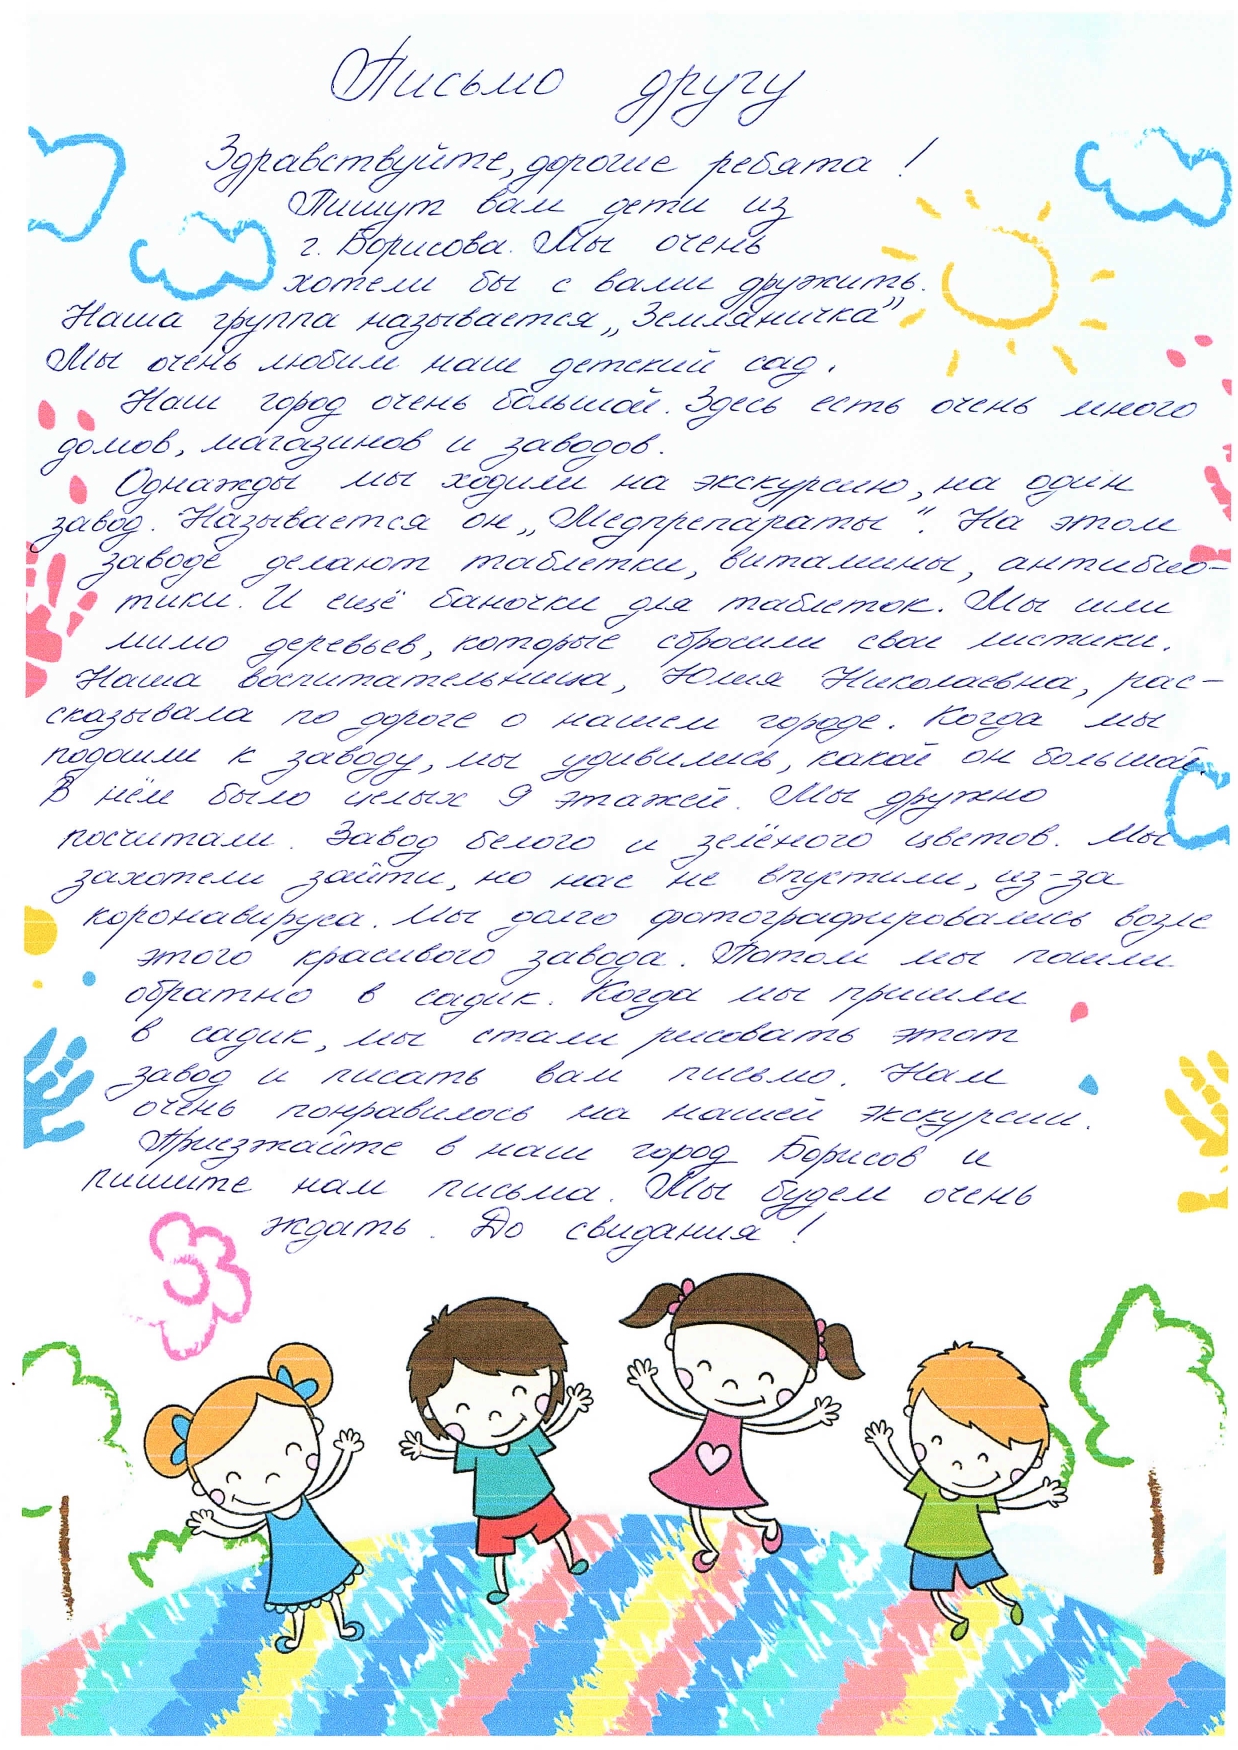 Письмо другу
Здравствуйте, дорогие ребята!
Пишут вам дети из
г. Борисова. Мы очень
хотели бы с вами дружить.
Наша группа называется „Земляничка”
Мы очень любим наш детский сад.
Наш город очень большой. Здесь есть очень много
домов, магазинов и заводов.
Однажды мы ходили на экскурсию, на один
завод. Называется он „Медпрепараты“. На этом
заводе делают таблетки, витамины, антибио-
тики. И ещё баночки для таблеток. Мы шли
мимо деревьев, которые сбросили свои листики.
Наша воспитательница, Юлия Николаевна, рас-
сказывала по дороге о нашем городе. Когда мы
подошли к заводу, мы удивились, какой он большой.
В нём было целых 9 этажей. Мы дружно
посчитали. Завод белого и зелёного цветов. Мы
захотели зайти, но нас не впустили, из-за
коронавируса. Мы долго фотографировались возле
этого красивого завода. Потом мы пошли
обратно в садик. Когда мы пришли
в садик, мы стали рисовать этот
завод и писать вам письмо. Нам
очень понравилось на нашей экскурсии.
Приезжайте в наш город Борисов и
пишите нам письма. Мы будем очень
ждать. До свидания!